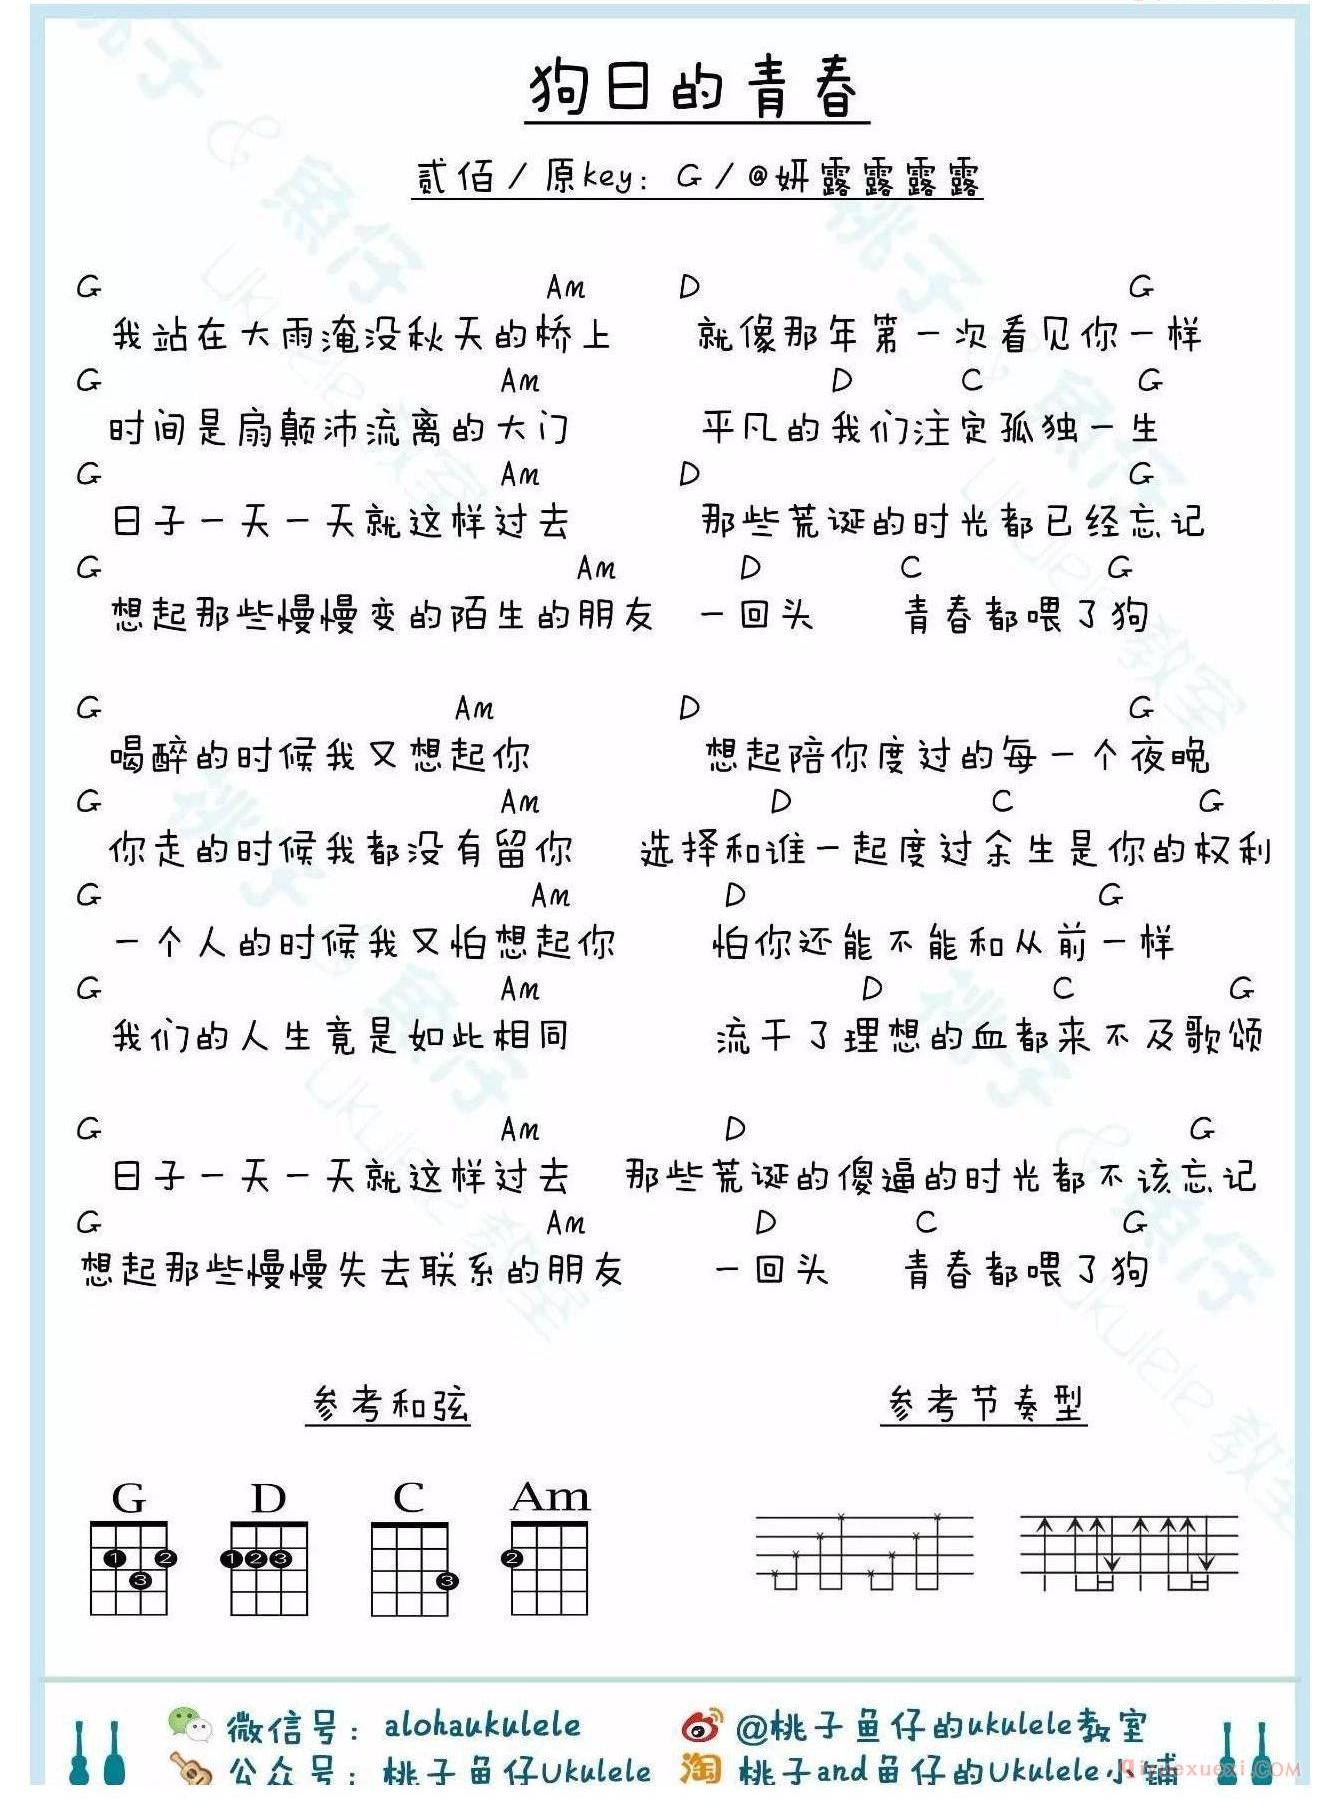 狗日的青春
贰佰/原key: G/@妍露露露露
G Am D G
我站在大雨淹没秋天的桥上 就像那年第一次看见你一样
G Am D C G
时间是扇颠沛流离的大门 平凡的我们注定孤独一生
G Am D G
日子一天一天就这样过去 那些荒诞的时光都已经忘记
G Am D C G
想起那些慢慢变的陌生的朋友 一回头 青春都喂了狗
G Am D G
喝醉的时候我又想起你 想起陪你度过的每一个夜晚
G Am D C G
你走的时候我都没有留你 选择和谁一起度过余生是你的权利
G Am D G
一个人的时候我又怕想起你 怕你还能不能和从前一样
G Am D C G
我们的人生竟是如此相同 流干了理想的血都来不及歌颂
G Am D G
日子一天一天就这样过去 那些荒诞的傻逼的时光都不该忘记
G Am D C G
想起那些慢慢失去联系的朋友 一回头 青春都喂了狗
参考和弦 参考节奏型
G D C Am
1 2 3 1 2 3 3 2
微信号: alohaukulele @桃子鱼仔的ukulele教室
公众号: 桃子鱼仔Ukulele 淘 桃子and鱼仔的Ukulele小铺
桃子&魚仔
Ukulele教室